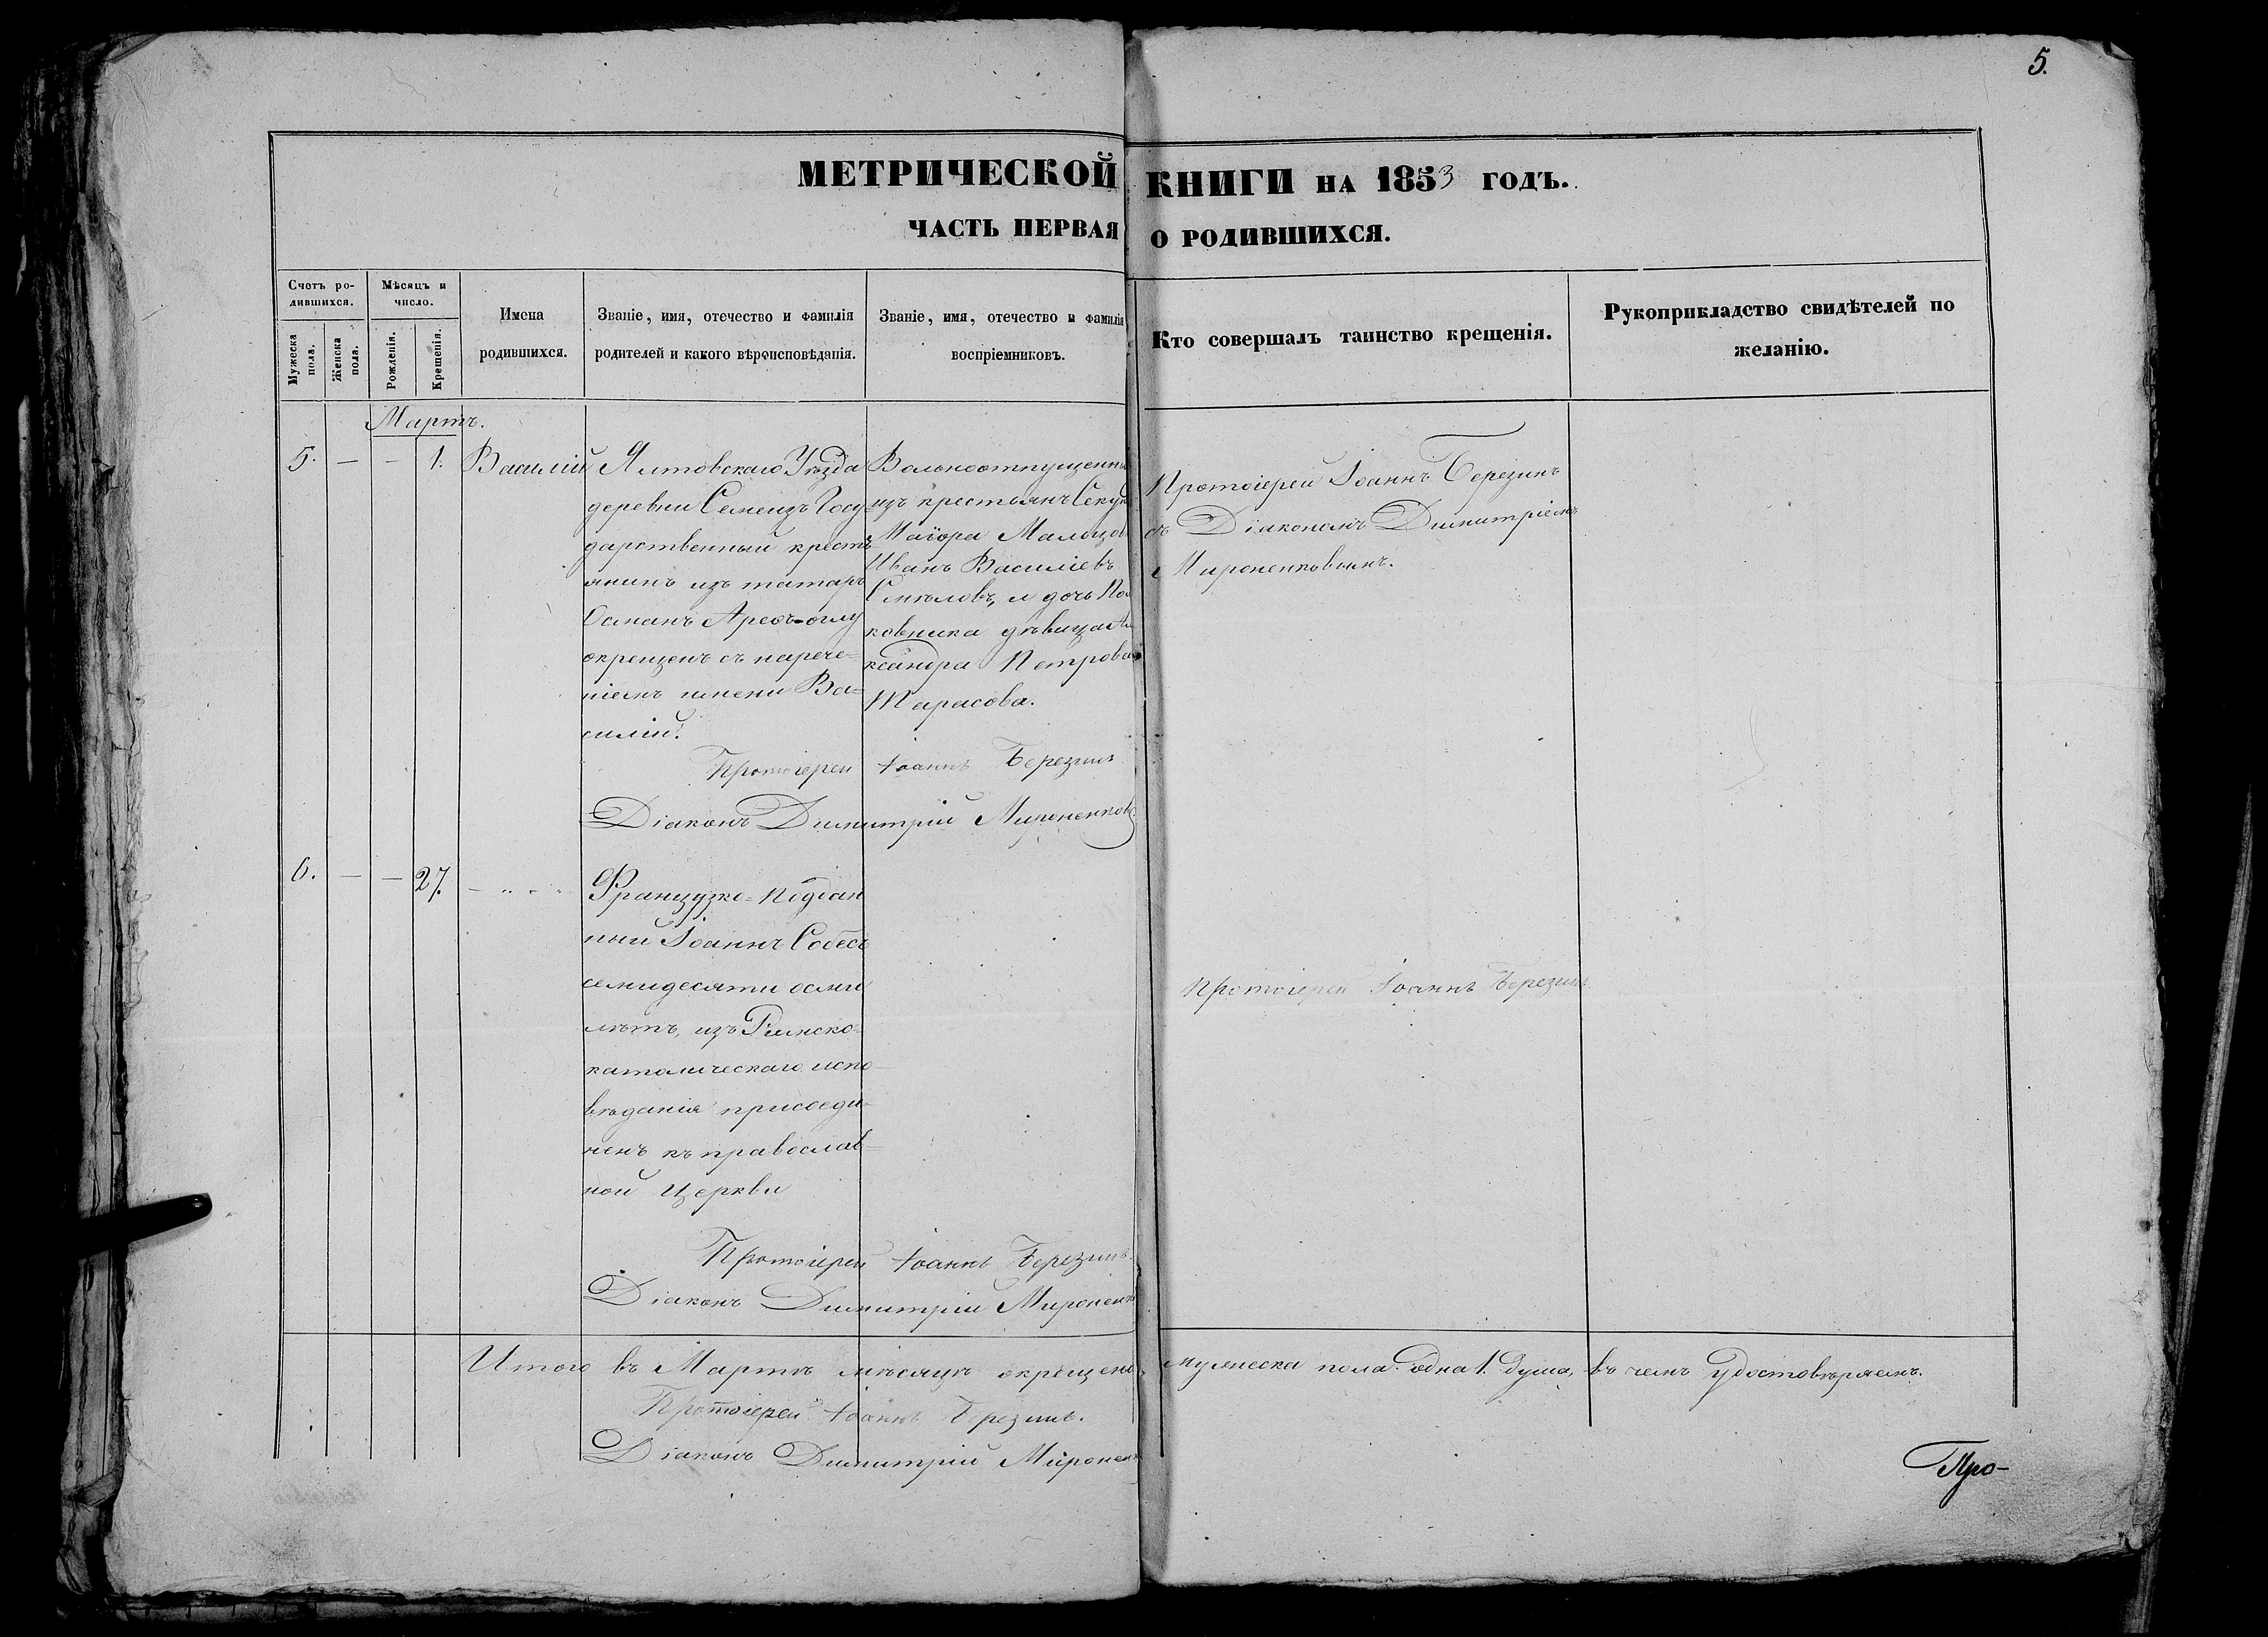 5.
МЕТРИЧЕСКОЙ КНИГИ НА 1853 ГОДЪ.
ЧАСТЬ ПЕРВАЯ О РОДИВШИХСЯ.
Счетъ ро-
дившихся.
Мужеска
пола.
Женска
пола.
Мѣсяцъ и
число.
Рожденія.
Крещенія.
Имена
родившихся.
Званіе, имя, отечество и фамилія
родителей и какого вѣроисповѣданія.
Званіе, имя, отечество и фамилія
воспріемниковъ.
Кто совершалъ таинство крещенія.
Рукоприкладство свидѣтелей по
желанію.
Мартъ.
5. — — 1. Василій
Ялтовскаго Уѣзда
деревни Семеизъ Госу-
дарственный кресть
янинъ изъ татаръ
Османъ Арсоъ-оглу
окрещенъ съ нарече-
ніемъ имени Ва-
силій.
Вольноотпущенны
изъ крестьянъ Секун
Маіора Мальцов
Иванъ Василіевъ
Смѣловъ, и дочь Пол
ковника дѣвица Але
ксандра Петрова
Тарасова.
Протоіерей Іоаннъ Березинъ
съ Діакономъ Димитріемъ
Мироненковымъ.
Протоіерей Іоаннъ Березинъ
Діаконъ Димитрій Мироненковъ
6. — — 27.
Французко-подан
ный Іоаннъ Собесъ
семидесяти осми
лѣтъ, изъ Римско-
католическаго испо-
вѣданія присоеди-
ненъ къ православ-
ной Церкви
Протоіерей Іоаннъ Березинъ
Протоіерей Іоаннъ Березинъ.
Діаконъ Димитрій Мироненк
Итого въ Мартѣ мѣсяцѣ окрещено мужеска пола одна 1. душа, въ чемъ удостовѣряемъ.
Протоіерей Іоаннъ Березинъ.
Діаконъ Димитрій Миронен
Про-